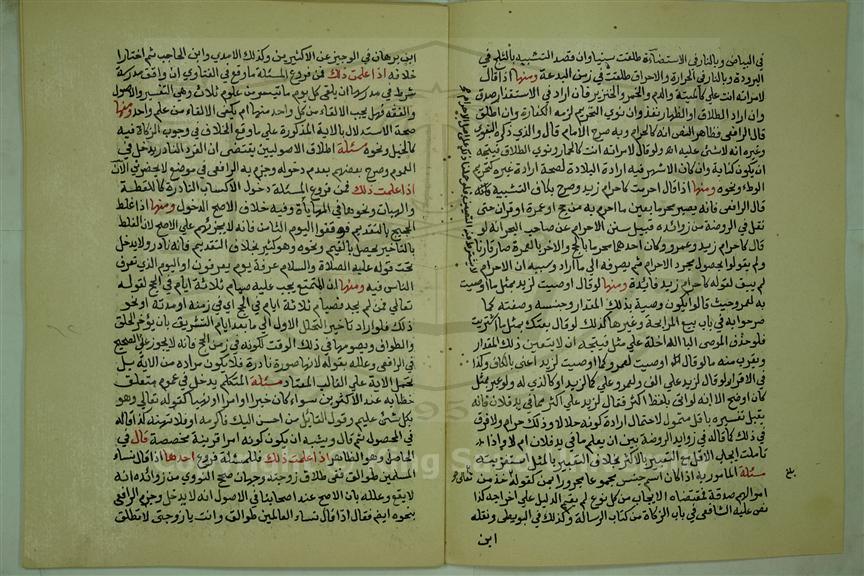 في البياض وبالنار في الاستضاءة طلقت سنيا وان قصد التشبيه بالثلج في
البرودة وبالنار في الحرارة والاحراق طلقت في زمن البدعة ومنها اذا قال
لامراته انت علي كالميتة والدم والخمر والخنزير فان اراد في الاستقذار صدق
وان اراد الطلاق او الظهار نفذ وان نوى التحريم لزمه الكفارة وان اطلق
قال الرافعي فظاهر النص انه كالحرام وبه صرح الامام قال والذي ذكره البغوي
وغيره انه لا شئ عليه الله ولو قال لامراته انت كالحمار ونوى الطلاق فيتجه
ان يكون كناية وان كان الاشهر فيه ارادة البلادة لصحة ارادة غيره كتحريم
الوطء ونحوه ومنها اذا قال احرمت كاحرام زيد وصرح بكاف التشبيه
قال الرافعي فانه يصير محرما بعين ما احرم به من حج او عمرة او قران حتى
نقل في الروضة من زوائده قبيل سنن الاحرام عن صاحب البحر انه لو
قال كاحرام زيد وعمرو وكان احدهما محرما بالحج والاخر بالعمرة صار قارنا
ولم يقولوا بحصول مجرد الاحرام ثم يصرفه الى ما اراد وسببه ان الاحرام
لم يبق لقوله كاحرام زيد فائدة ومنها لو قال اوصيت لزيد بمثل ما اوصيت
به لعمرو حيث قالوا يكون وصية بذلك المقدار وجنسه وصفته كما
صرحوا به في باب بيع المرابحة وغيرها كذلك لو قال بعتك بمثل ما اشتريت
فلو حذف الموصي الباء الداخلة على مثل فيتجه ان لا يتعين ذلك المقدار
ويقرب منه ما لو قال اوصيت لعمرو كما اوصيت لزيد اعني بالكاف وكذا
في الاقرار لو قال لزيد علي الف ولعمرو علي كالزيد او كالذي له ولو عبر بمثل
كان اوضح الا انه لو اتى بلفظ اكثر فقال لزيد علي اكثر مما في يد فلان فانه
يقبل تفسيره باقل متمول لاحتمال ارادة كونه حلالا وذاك حرام ولا فرق
في ذلك كما قاله في زوايد الروضة بين ان يعلم ما في يد فلان ام لا واذا
تاملت ايجاب الاقل مع التعبير بالاكثر بخلاف التعبير بالمثل استغربته
مسئلة المامور به اذا كان اسم جنس مجموعا مجرورا بمن كقوله خذ من
اموالهم صدقة فمقتضاه الايجاب من كل نوع لم يقم الدليل على اخراجه كذا
نص عليه الشافعي في باب الزكاة من كتاب الرسالة وكذلك في البويطي ونقله
ابن
بلغ
تعالى
ابن برهان في الوجيز عن الاكثرين وكذلك الامدي وابن الحاجب ثم اختارا
خلافه اذا علمت ذلك فمن فروع المسئلة ما وقع في الفتاوي ان واقف مدرسة
شرط في مدرسها ان يلقي كل يوم ما تيسر من علوم ثلاث وهي التفسير والاصول
والفقه فهل يجب الالقاء من كل واحد منها ام يكفي الالقاء من علم واحد ومنها
صحة الاستدلال بالاية المذكورة على ما وقع الخلاف في وجوب الزكاة فيه
كالخيل ونحوه مسئلة اطلاق الاصوليين يقتضي ان الفرد النادر يدخل في
العموم وصرح بعضهم بعدم دخوله وجزم به الرافعي في موضع لا يحضرني الان
اذا علمت ذلك فمن فروع المسئلة دخول الاكساب النادرة كاللقطة
والهبات ونحوها في المهاياة وفيه خلاف الاصح الدخول ومنها اذا غلط
الحجيج بالتقديم فوقفوا اليوم الثامن فانه لا يجزئهم على الاصح لان الغلط
بالتاخير يحصل بالغيم ونحوه وهو كثير بخلاف التقديم فانه نادر ولا يدخل
تحت قوله عليه الصلاة والسلام عرفة يوم يعرفون او اليوم الذي تعرف
الناس فيه ومنها ان المتمتع يجب عليه صيام ثلاثة ايام في الحج لقوله
تعالى فمن لم يجد فصيام ثلاثة ايام في الحج اي في زمنه او مدته او نحو
ذلك فلو اراد تاخير التحلل الاول الى ما بعد ايام التشريق بان يؤخر الحلق
والطواف ويصومها في ذلك الوقت لكونه في زمن الحج فانه لا يجوز على الصحيح
في الرافعي وعلله بقوله لانها صورة نادرة فلا يكون مراده من الاية بل
تحمل الاية على الغالب المعتاد مسئلة المتكلم يدخل في عموم متعلق
خطابه عند الاكثرين سواء كان خبرا او امرا او نهيا كقوله تعالى وهو
بكل شئ عليم وقول القائل من احسن اليك فاكرمه او فلا تهنه كذا قاله
في المحصول ثم قال ويشبه ان يكون كونه امرا قرينة مخصصة قال في
الحاصل وهو الظاهر اذا علمت ذلك فللمسئلة فروع احدها اذا قال نساء
المسلمين طوالق ففي طلاق زوجته وجهان صحح النووي من زوائده انه
لا يقع وعلله بان الاصح عند اصحابنا في الاصول انه لا يدخل وجزم الرافعي
بنحوه ايضا فقال اذا قال نساء العالمين طوالق وانت يا زوجتي لا تطلق